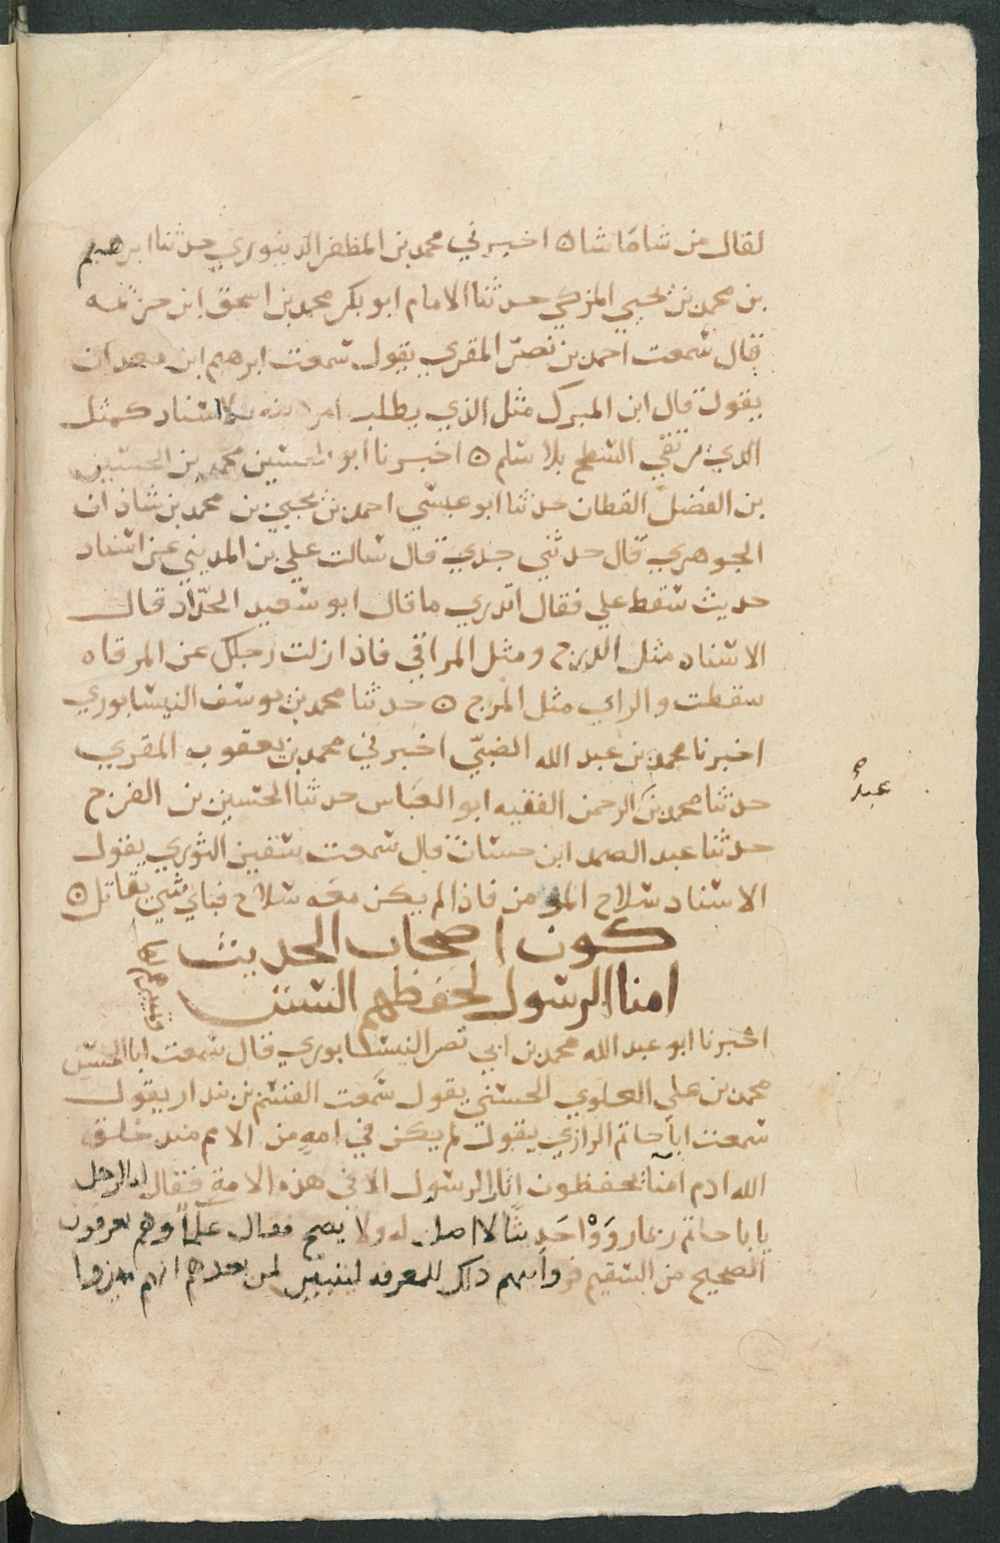 لقال من شاما شا ه اخبرني محمد بن المظفر الدينوري حدثنا ابرهيم
بن محمد بن يحيي المزكي حدثنا الامام ابو بكر محمد بن اسحق ابن خزيمه
قال سمعت احمد بن نصر المقري يقول سمعت ابرهيم ابن معدان
يقول قال ابن المبرك مثل الذي يطلب امر دينه بلا اسناد كمثل
الذي يرتقي السطح بلا سلم ه اخبرنا ابو الحسين محمد بن الحسين
بن الفضل القطان حدثنا ابو عيسي احمد بن يحيي بن محمد بن شاذان
الجوهري قال حدثني جدي قال سالت علي بن المديني عن اسناد
حديث سقط علي فقال اتدري ما قال ابو سعيد الحدّاد قال
الاسناد مثل الدرج ومثل المراقي فاذا زلت رجلك عن المرقاه
سقطت والراي مثل المرج ه حدثنا محمد بن يوسف النيسابوري
اخبرنا محمد بن عبد الله الضبّي اخبرني محمد بن يعقوب المقري
حدثنا محمد بن الرحمن الفقيه ابو العباس حدثنا الحسين بن الفرج
عبد
حدثنا عبد الصمد ابن حسان قال سمعت سفين الثوري يقول
الاسناد سلاح المومن فاذا لم يكن معه سلاح فباي شي يقاتل ه
كون اصحاب الحديث
امنا الرسول لحفظهم السنن
اخبرنا ابو عبد الله محمد بن ابي نصر النيسابوري قال سمعت ابا الحسن
محمد بن علي العلوي الحسني يقول سمعت القسم بن بندار يقول
سمعت ابا حاتم الرازي يقول لم يكن في امه من الامم منذ خلق
الله ادم امنا يحفظون اثار الرسول الا في هذه الامه فقال له الرجل
يا با حاتم ربما رَوَوْا حَديثًا لا اصل له ولا يصح فقال علما وهم يعرفون
الصحيح من السقيم فروايتهم ذلك للمعرفه ليتبين لمن بعدهم انهم ميزوا